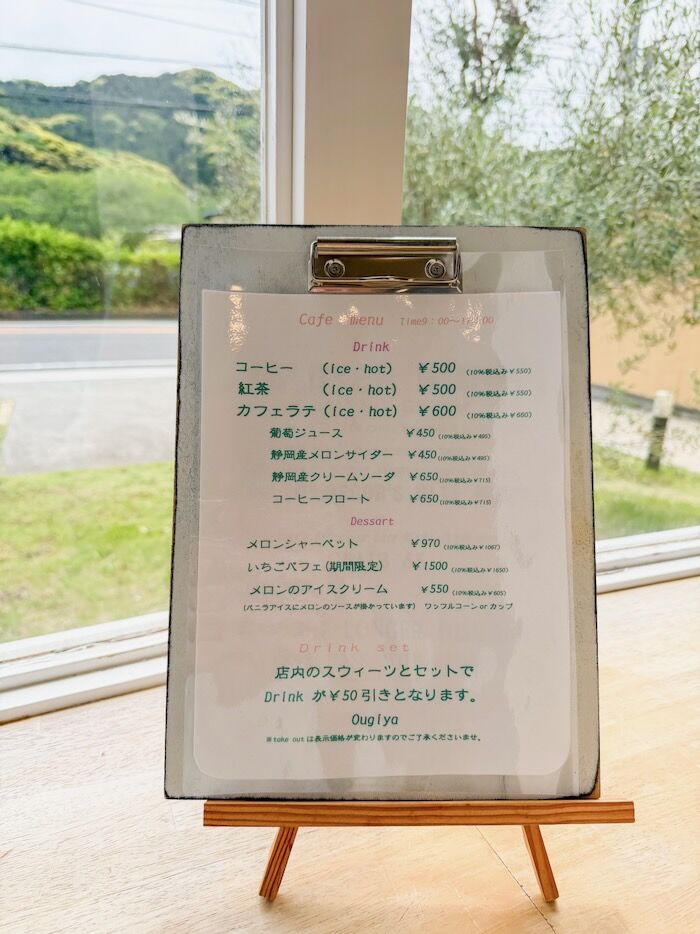 Cafe menu Time9：00～
Drink
コーヒー (ice・hot) ￥500 (10%税込み￥550)
紅茶 (ice・hot) ￥500 (10%税込み￥550)
カフェラテ (ice・hot) ￥600 (10%税込み￥660)
葡萄ジュース ￥450 (10%税込み￥495)
静岡産メロンサイダー ￥450 (10%税込み￥495)
静岡産クリームソーダ ￥650 (10%税込み￥715)
コーヒーフロート ￥650 (10%税込み￥715)
Dessart
メロンシャーベット ￥970 (10%税込み￥1067)
いちごパフェ(期間限定) ￥1500 (10%税込み￥1650)
メロンのアイスクリーム ￥550 (10%税込み￥605)
(バニラアイスにメロンのソースが掛かっています) ワッフルコーン or カップ
Drink set
店内のスウィーツとセットで
Drink が￥50引きとなります。
Ougiya
※take out は表示価格が変わりますのでご了承くださいませ。